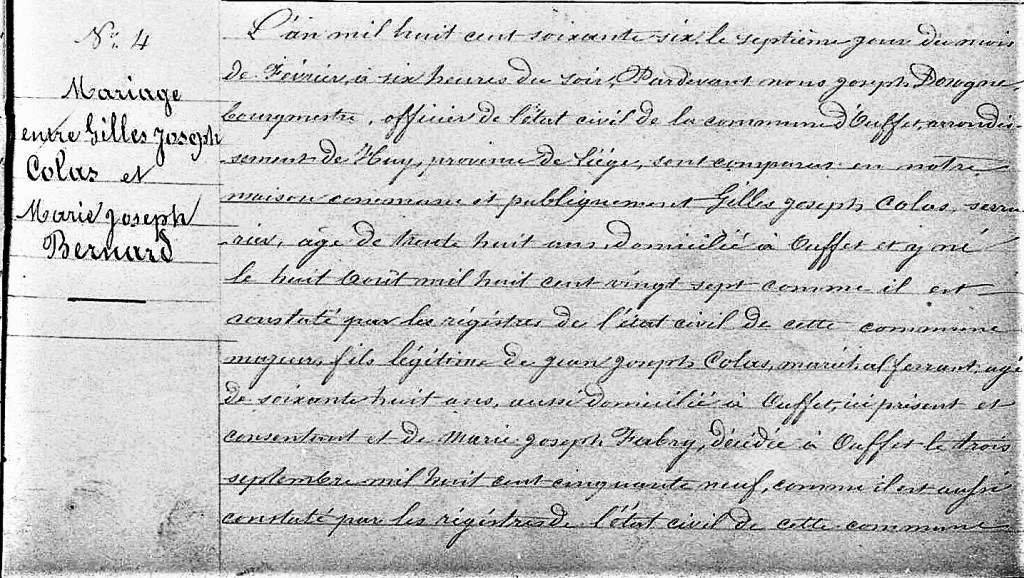 N° 4
Mariage
entre Gilles Joseph
Colas et
Marie Joseph
Bernard
L'an mil huit cent soixante-six, le septième jour du mois
de Février, à six heures du soir, Pardevant nous Joseph Dowogne
bourgmestre, officier de l'état civil de la commune d'Ouffet, arrondis-
-sement de Huy, province de Liége, sont comparus en notre
maison commune et publiquement Gilles Joseph Colas, serru
-rier, âgé de trente huit ans domicilié à Ouffet et y né
le huit Août mil huit cent vingt sept comme il est
constaté par les régistres de l'état civil de cette commune
majeur, fils légitime de Jean Joseph Colas, maréchal ferrant, agé
de soixante huit ans, aussi domicilié à Ouffet, ici présent et
consentant et de Marie Joseph Fabry, décédée à Ouffet le trois
septembre mil huit cent cinquante neuf, comme il est aussi
constaté par les régistres de l'état civil de cette commune